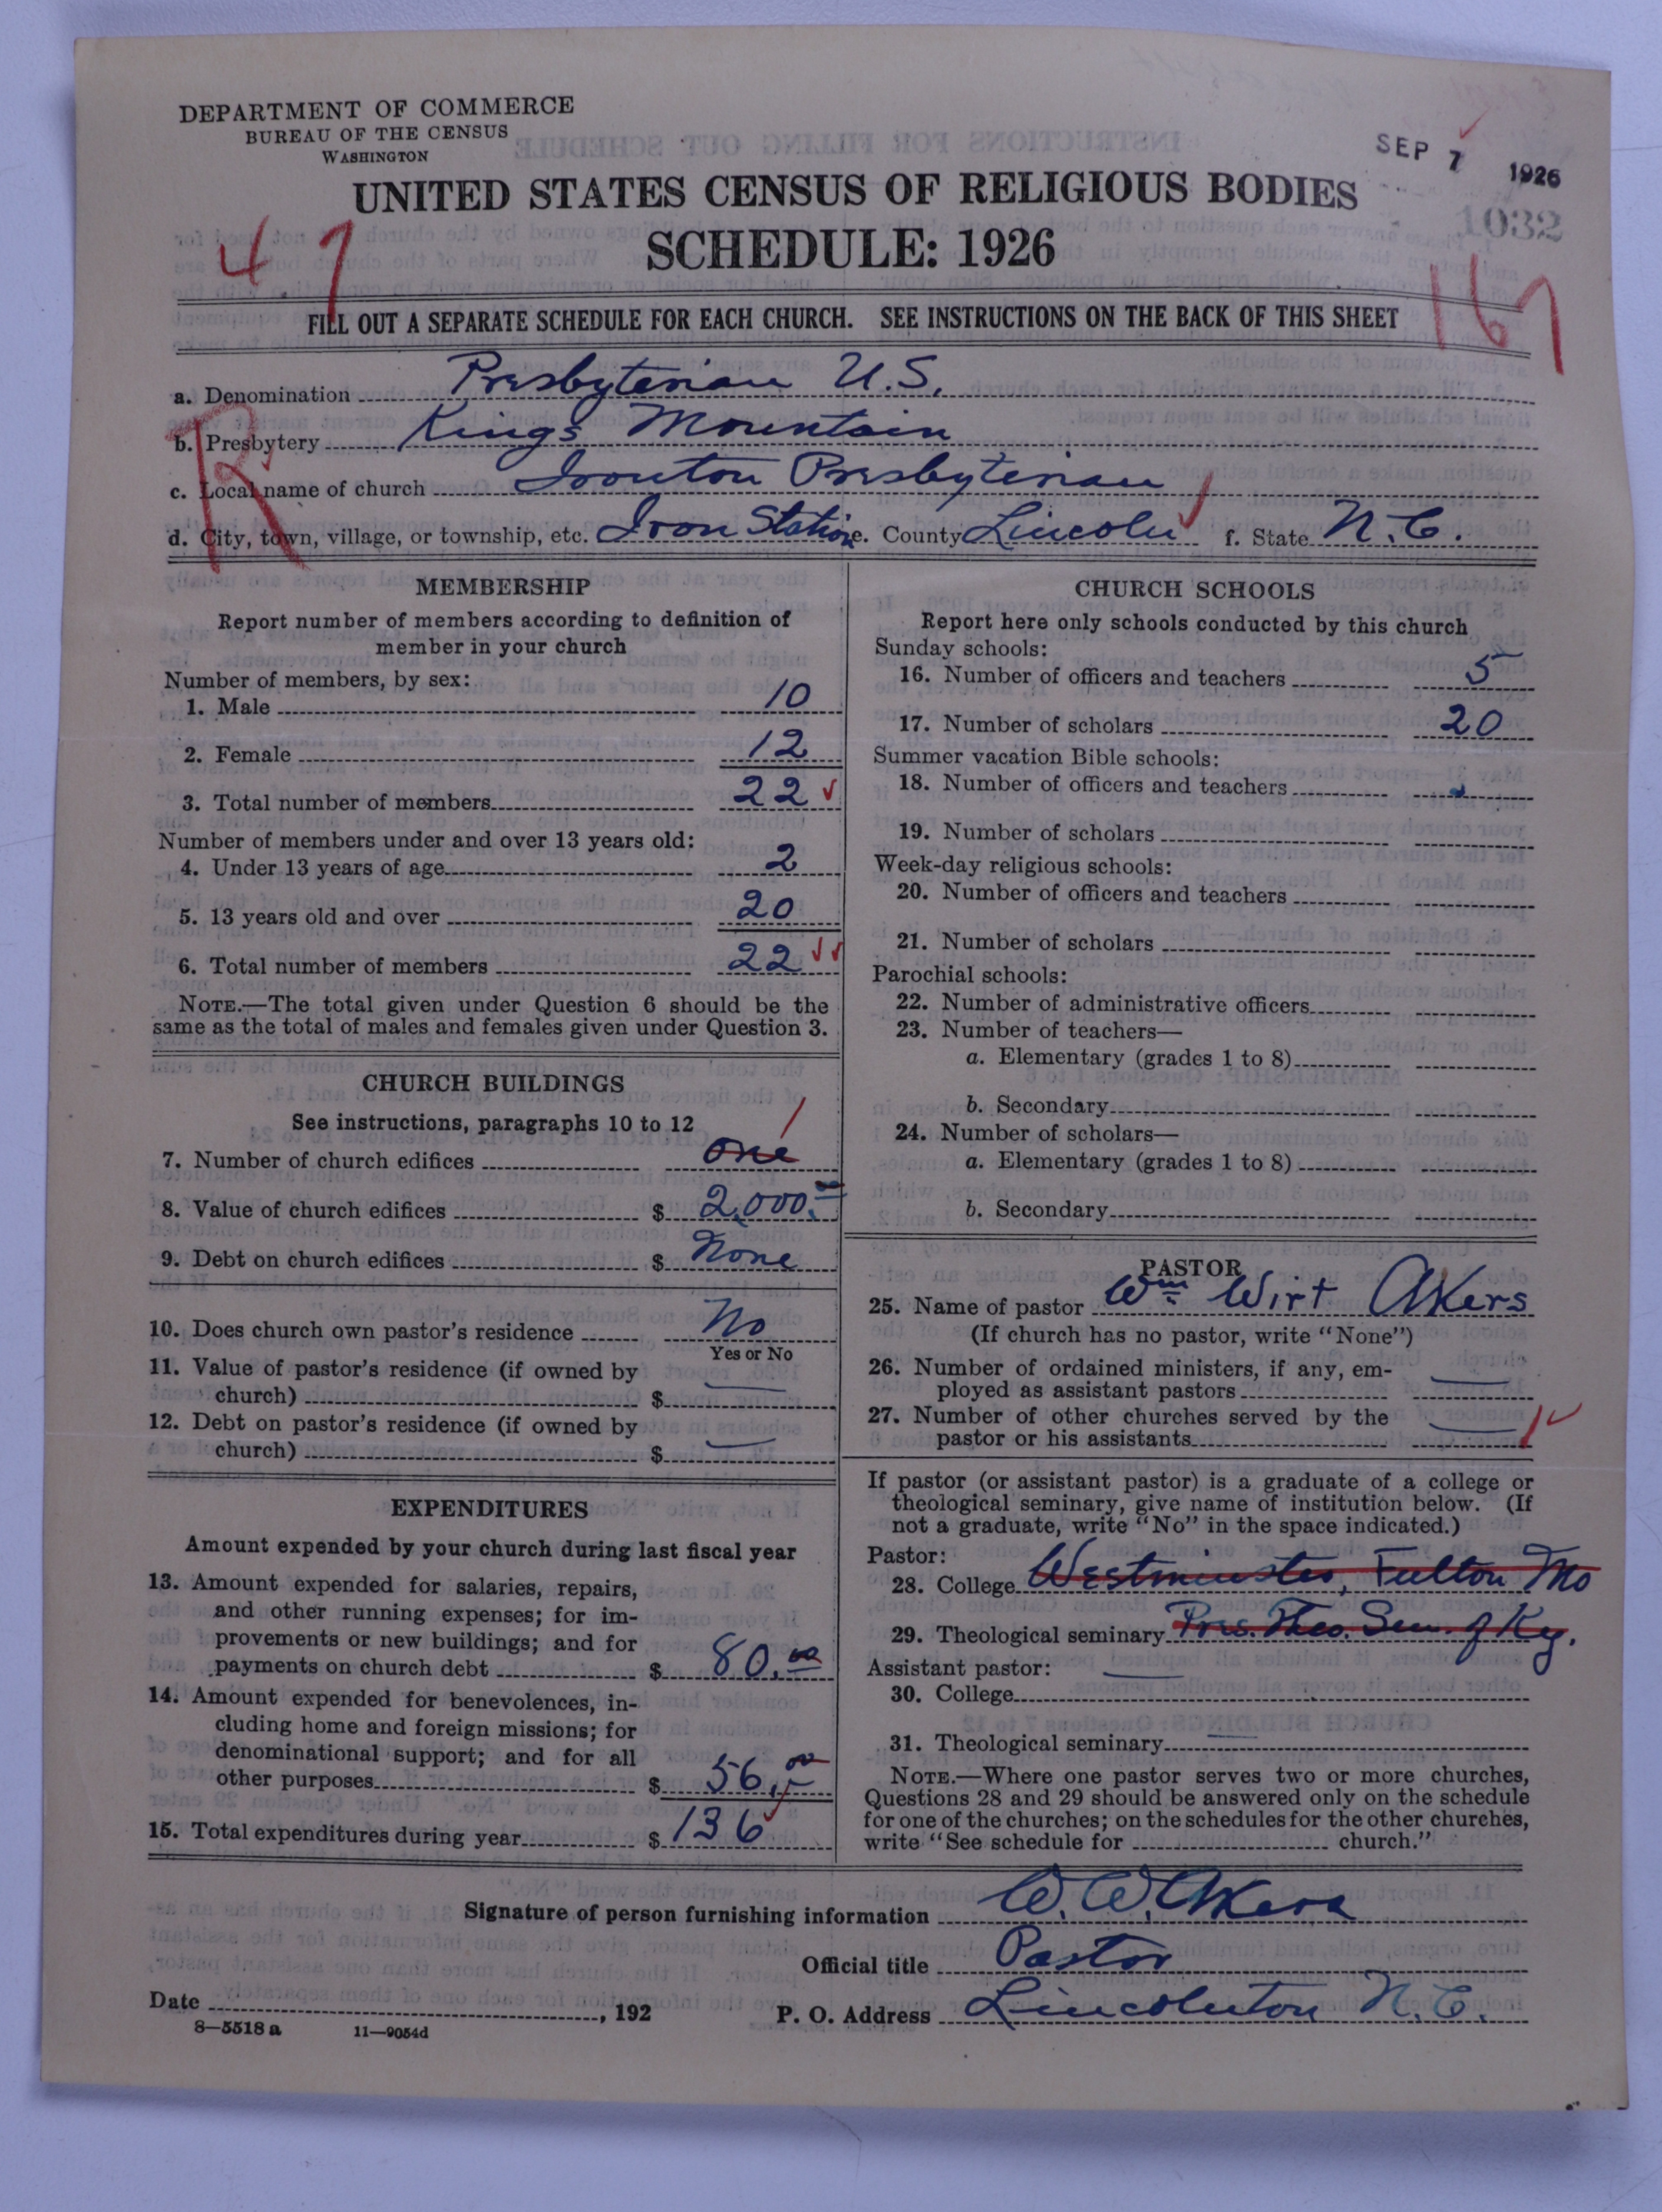 DEPARTMENT OF COMMERCE
BUREAU OF THE CENSUS
WASHINGTON
SEP 7 1926
1032
UNITED STATES CENSUS OF RELIGIOUS BODIES
SCHEDULE: 1926
47
167
FILL OUT A SEPARATE SCHEDULE FOR EACH CHURCH. SEE INSTRUCTIONS ON THE BACK OF THIS SHEET
R
a. Denomination Presbyterian U.S.
b. Presbytery Kings Mountain
c. Local name of church Ironton Presbyterian
d. City, town, village, or township, etc. Iron Station e. County Lincoln f. State N.C.
MEMBERSHIP
Report number of members according to definition of
member in your church
Number of members, by sex:
1. Male 10
2. Female 12
3. Total number of members 22
Number of members under and over 13 years old:
4. Under 13 years of age 2
5. 13 years old and over 20
6. Total number of members 22
NOTE.—The total given under Question 6 should be the
same as the total of males and females given under Question 3.
CHURCH BUILDINGS
See instructions, paragraphs 10 to 12
7. Number of church edifices one 1
8. Value of church edifices $ 2,000.00
9. Debt on church edifices $ None
10. Does church own pastor's residence No
Yes or No
11. Value of pastor's residence (if owned by
church) $ —
12. Debt on pastor's residence (if owned by
church) $ —
EXPENDITURES
Amount expended by your church during last fiscal year
13. Amount expended for salaries, repairs,
and other running expenses; for im-
provements or new buildings; and for
payments on church debt $ 80.00
14. Amount expended for benevolences, in-
cluding home and foreign missions; for
denominational support; and for all
other purposes $ 56.00
15. Total expenditures during year $ 136
CHURCH SCHOOLS
Report here only schools conducted by this church
Sunday schools:
16. Number of officers and teachers 5
17. Number of scholars 20
Summer vacation Bible schools:
18. Number of officers and teachers
19. Number of scholars
Week-day religious schools:
20. Number of officers and teachers
21. Number of scholars
Parochial schools:
22. Number of administrative officers
23. Number of teachers—
a. Elementary (grades 1 to 8)
b. Secondary
24. Number of scholars—
a. Elementary (grades 1 to 8)
b. Secondary
PASTOR
25. Name of pastor Wm Wirt Akers
(If church has no pastor, write "None")
26. Number of ordained ministers, if any, em-
ployed as assistant pastors —
27. Number of other churches served by the
pastor or his assistants —
If pastor (or assistant pastor) is a graduate of a college or
theological seminary, give name of institution below. (If
not a graduate, write "No" in the space indicated.)
Pastor:
28. College Westminster, Fulton Mo
29. Theological seminary Pres. Theo. Sem. of Ky.
Assistant pastor: —
30. College
31. Theological seminary
NOTE.—Where one pastor serves two or more churches,
Questions 28 and 29 should be answered only on the schedule
for one of the churches; on the schedules for the other churches,
write "See schedule for church."
Signature of person furnishing information W. W. Akers
Official title Pastor
Date , 192
P. O. Address Lincolnton N.C.
8—5518 a 11—9054d